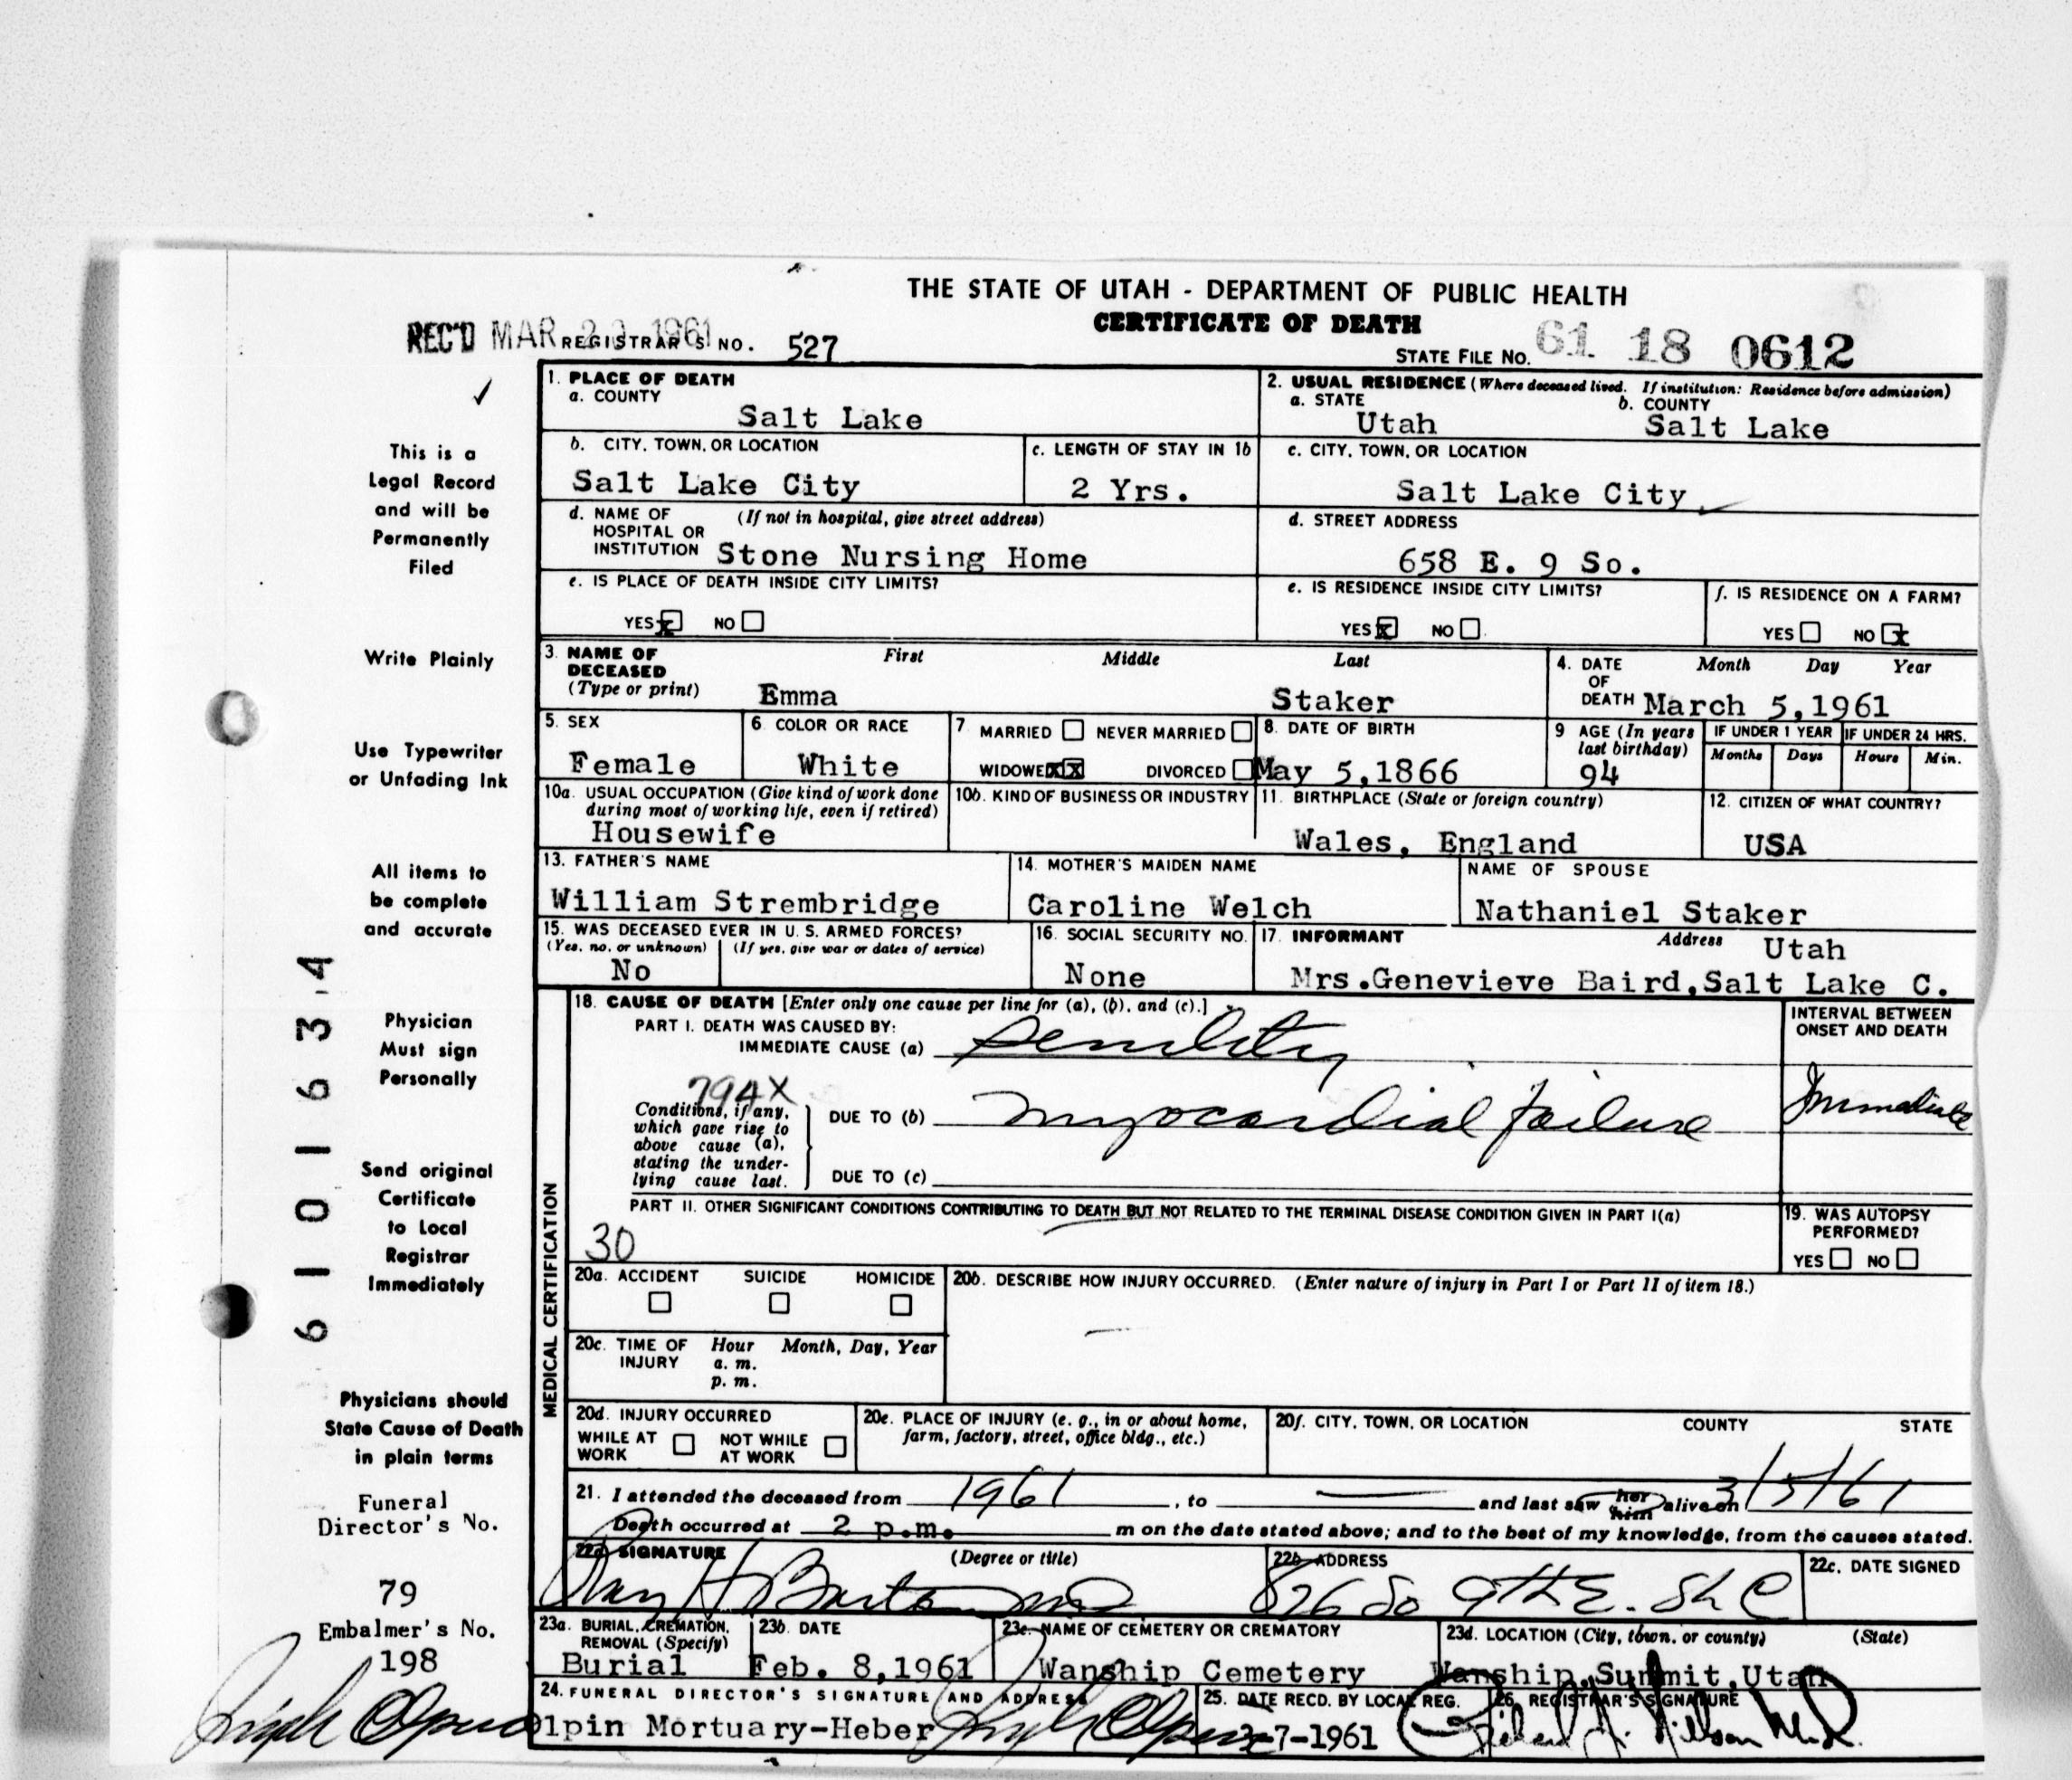 THE STATE OF UTAH - DEPARTMENT OF PUBLIC HEALTH
CERTIFICATE OF DEATH
REC'D MAR 1961 REGISTRAR'S NO. 527
STATE FILE NO. 61 18 0612
1. PLACE OF DEATH
a. COUNTY
Salt Lake
2. USUAL RESIDENCE (Where deceased lived. If institution: Residence before admission)
a. STATE
Utah
b. COUNTY
Salt Lake
b. CITY, TOWN, OR LOCATION
Salt Lake City
c. LENGTH OF STAY IN 1b
2 Yrs.
c. CITY, TOWN, OR LOCATION
Salt Lake City
d. NAME OF (If not in hospital, give street address)
HOSPITAL OR
INSTITUTION Stone Nursing Home
d. STREET ADDRESS
658 E. 9 So.
e. IS PLACE OF DEATH INSIDE CITY LIMITS?
YES X NO
e. IS RESIDENCE INSIDE CITY LIMITS?
YES X NO
f. IS RESIDENCE ON A FARM?
YES NO X
3. NAME OF DECEASED (Type or print)
First Middle Last
Emma Staker
4. DATE OF DEATH
Month Day Year
March 5,1961
5. SEX
Female
6. COLOR OR RACE
White
7 MARRIED NEVER MARRIED
WIDOWED XX DIVORCED
8. DATE OF BIRTH
May 5,1866
9 AGE (In years last birthday)
94
IF UNDER 1 YEAR IF UNDER 24 HRS.
Months Days Hours Min.
10a. USUAL OCCUPATION (Give kind of work done
during most of working life, even if retired)
Housewife
10b. KIND OF BUSINESS OR INDUSTRY
11. BIRTHPLACE (State or foreign country)
Wales, England
12. CITIZEN OF WHAT COUNTRY?
USA
13. FATHER'S NAME
William Strembridge
14. MOTHER'S MAIDEN NAME
Caroline Welch
NAME OF SPOUSE
Nathaniel Staker
15. WAS DECEASED EVER IN U.S. ARMED FORCES?
(Yes, no, or unknown) (If yes, give war or dates of service)
No
16. SOCIAL SECURITY NO.
None
17. INFORMANT Address Utah
Mrs.Genevieve Baird,Salt Lake C.
MEDICAL CERTIFICATION
18. CAUSE OF DEATH [Enter only one cause per line for (a), (b), and (c).]
PART I. DEATH WAS CAUSED BY:
IMMEDIATE CAUSE (a) Senility
INTERVAL BETWEEN
ONSET AND DEATH
794X
Conditions, if any,
which gave rise to
above cause (a),
stating the under-
lying cause last.
DUE TO (b) myocardial failure
Immediate
DUE TO (c)
PART II. OTHER SIGNIFICANT CONDITIONS CONTRIBUTING TO DEATH BUT NOT RELATED TO THE TERMINAL DISEASE CONDITION GIVEN IN PART I(a)
30
19. WAS AUTOPSY
PERFORMED?
YES NO
20a. ACCIDENT SUICIDE HOMICIDE
20b. DESCRIBE HOW INJURY OCCURRED. (Enter nature of injury in Part I or Part II of item 18.)
20c. TIME OF INJURY
Hour Month, Day, Year
a. m.
p. m.
20d. INJURY OCCURRED
WHILE AT WORK NOT WHILE AT WORK
20e. PLACE OF INJURY (e. g., in or about home,
farm, factory, street, office bldg., etc.)
20f. CITY, TOWN, OR LOCATION COUNTY STATE
21. I attended the deceased from 1961 , to — and last saw her him alive on 3/5/61
Death occurred at 2 p.m. m on the date stated above; and to the best of my knowledge, from the causes stated.
22a. SIGNATURE (Degree or title)
Ray H. MD
22b. ADDRESS
826 So 9th E. SLC
22c. DATE SIGNED
23a. BURIAL, CREMATION,
REMOVAL (Specify)
Burial
23b. DATE
Feb. 8,1961
23c. NAME OF CEMETERY OR CREMATORY
Wanship Cemetery
23d. LOCATION (City, town, or county) (State)
Wanship,Summit,Utah
24. FUNERAL DIRECTOR'S SIGNATURE AND ADDRESS
Olpin Mortuary-Heber
25. DATE RECD. BY LOCAL REG.
3-7-1961
26. REGISTRAR'S SIGNATURE
This is a
Legal Record
and will be
Permanently
Filed
Write Plainly
Use Typewriter
or Unfading Ink
All items to
be complete
and accurate
Physician
Must sign
Personally
Send original
Certificate
to Local
Registrar
Immediately
Physicians should
State Cause of Death
in plain terms
Funeral
Director's No.
79
Embalmer's No.
198